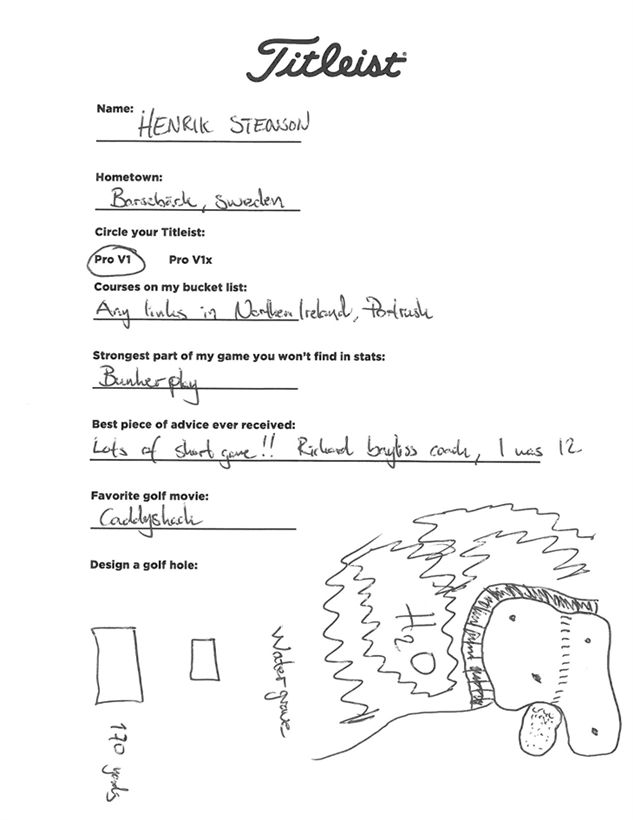 Titleist
Name:
HENRIK STENSON
Hometown:
Barsebäck, Sweden
Circle your Titleist:
Pro V1 Pro V1x
Courses on my bucket list:
Any links in Northern Ireland, Portrush
Strongest part of my game you won't find in stats:
Bunker play
Best piece of advice ever received:
Lots of short game!! Richard bayliss coach, I was 12
Favorite golf movie:
Caddyshack
Design a golf hole:
H2O
Water grave
170 yards